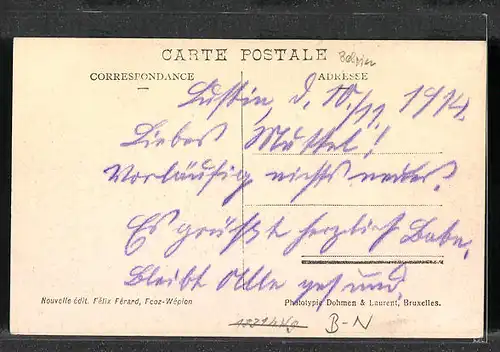 CARTE POSTALE
Belgien
CORRESPONDANCE
ADRESSE
Lustin, d. 10./11. 1914.
Liebes Muttel!
Vorläufig nichts neues.
Es grüßt herzlich Babe.
Bleibt Alle gesund.
Nouvelle édit. Félix Férand, Fcoz-Wépion
Phototypie Dohmen & Laurent, Bruxelles.
B-N